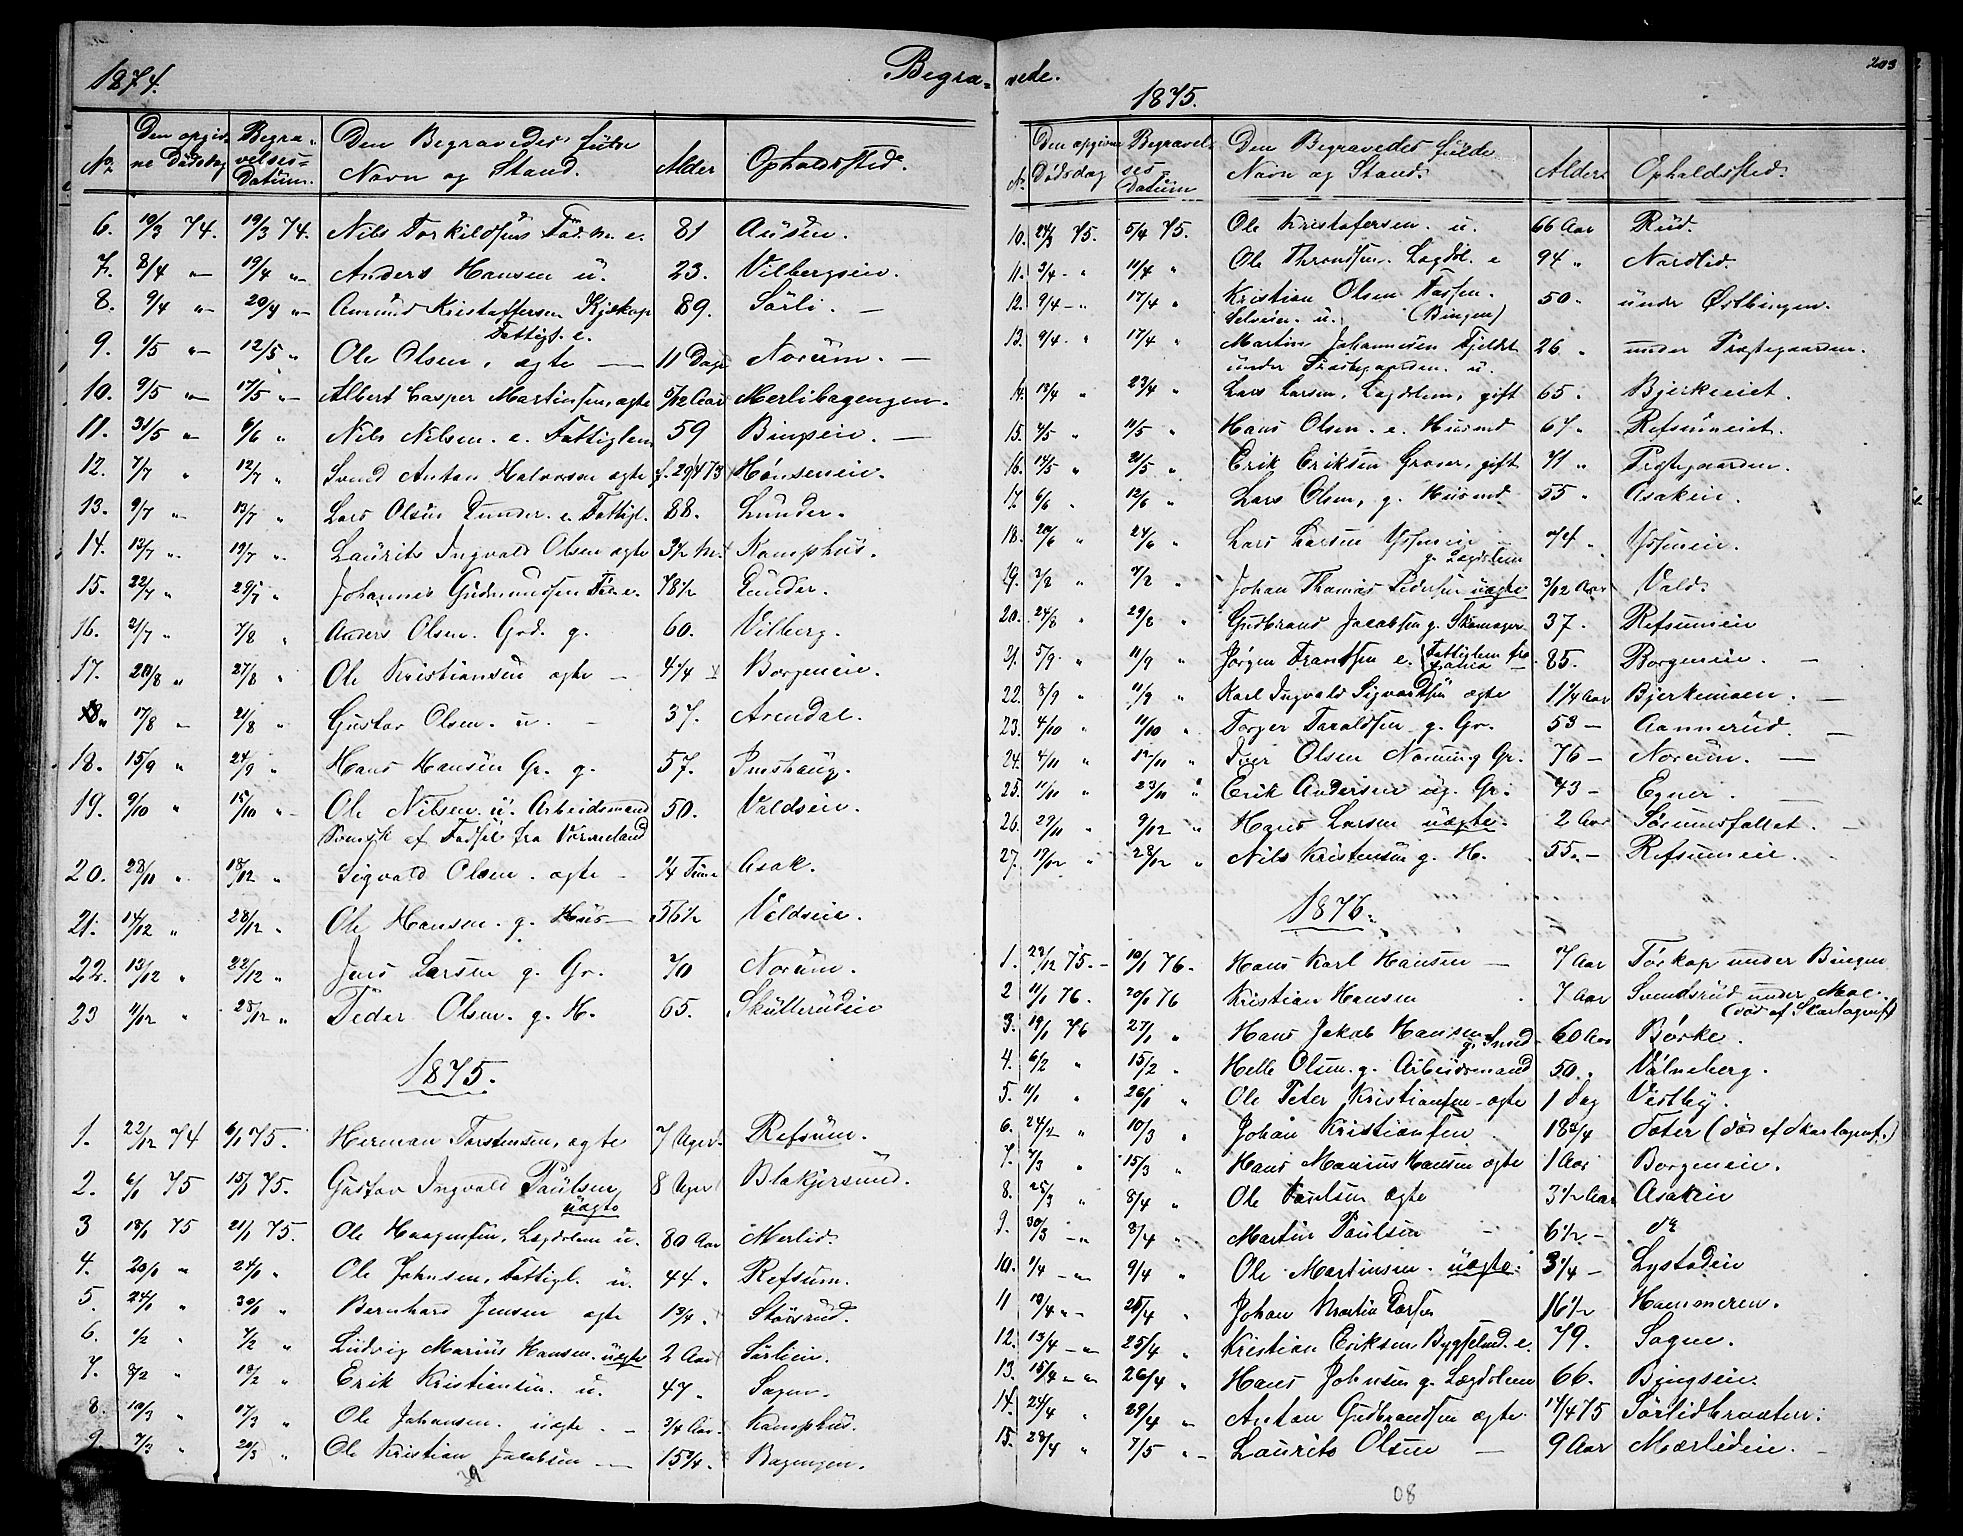 1874. Begra=
No. Den opgiv- ne Dødsdag Begra- velses= Datum. Den Begravedes fulde Navn og Stand. Alder Opholdssted.
6. 10/3 74. 19/3 74. Nils Torkildsens Fød. M. e. 81 Ausen.
7. 8/4 " 19/4 " Anders Hansen u. 23. Vilbergseie.
8. 9/4 " 20/4 " Amund Kristoffersen Kjelkop 89. Sörli. —
Fattigl. e.
9. 1/5 " 12/5 " Ole Olsen, ægte — 11 Dage Norum. —
10. 9/5 " 17/5 " Albert Casper Martinsen, ægte 5/12 Aar Merlibagengen.
11. 31/5 " 6/6 " Nils Nilsen. e. Fattiglem 59 Bingseie. —
12. 7/7 " 12/7 " Svend Anton Halvorsen ægte f. 29/4 73 Hønseneie.
13. 9/7 " 13/7 " Lars Olsen Lunder. e. Fattigl. 88. Lunder.
14. 13/7 " 19/7 " Laurits Ingvald Olsen ægte 3 1/2 M. Kamphus.
15. 22/7 " 29/7 " Johannes Gudmundsen e. 78 1/2 Lunder.
16. 2/7 " 7/8 " Anders Olsen. Grd. g. 60. Vilberg.
17. 20/8 " 27/8 " Ole Kristiansen ægte — 4 1/4 Borgeneie.
18. 17/8 " 21/8 " Gustav Olsen. u. — 37. Arendal.
18. 15/9 " 24/9 " Hans Hansen Gr. g. 57. Imshaug.
19. 9/10 " 15/10 " Ole Nilsen u. Arbeidsmand 50. Valdseie.
Svensk af Fødsel fra Värmeland
20. 28/11 " 18/12 " Sigvald Olsen. ægte — 1/4 Time Asak.
21. 14/12 " 28/12 " Ole Hansen. g. Hus— 56 1/2 Valdseie.
22. 13/12 " 22/12 " Jens Larsen g. Gr. 70 Norum.
23 11/12 " 28/12 " Peder Olsen. g. H. 65. Skullerudeie
1875.
1. 22/12 74 6/1 75. Herman Torstensen, ægte 7 Uger. Refsum.
2. 6/1 75 15/1 75. Gustav Ingvald Paulsen 8 Uger Blakjersund.
uægte
3 13/1 75 21/1 75. Ole Haagensen, Lægdslem u. 80 Aar Merlid.
4. 20/1 " 24/1 " Ole Johnsen, Fattigl. u. 44 " Refsum.
5. 24/1 " 30/1 " Bernhard Jensen ægte 1 3/4 " Stövrud.
6. 1/2 " 7/2 " Ludvig Marius Hansen uægte 2 Aar Sörlieie.
7. 8/2 " 13/2 " Erik Kristiansen. u. 47 " Sagen.
8. 10/3 " 17/3 " Ole Johansen. uægte. — 3/4 Aar Kamphus.
9. 7/3 " 20/3 " Ole Kristian Jacobsen — 15 3/4. Bagengen.
vede. 203
1875.
No. Den opgivne Dødsdag Begravel- ses- Datum Den Begravedes fulde Navn og Stand. Alder. Opholdssted.
10. 24/3 75. 5/4 75. Ole Kristofersen. u. 66 Aar Rud.
11. 3/4 " 11/4 " Ole Throndsen. Lægdsl. e 94 " Nordlid.
12. 9/4 " 17/4 " Kristian Olsen Fossen. 50 " under Østbingen.
Selveier. u. (Bingen)
13. 9/4 " 17/4 " Martin Johannesen Fjeldet 26 " under Præstegaarden.
under Præstegaarden. u.
14. 13/4 " 23/4 " Lars Larsen, Lægdslem, gift 65. Bjerkeeiet.
15. 4/5 " 11/5 " Hans Olsen. e. Husmd 67 " Refsumeiet.
16. 14/5 " 21/5 " Erik Eriksen Graver, gift 71 " Prstegaarden.
17 6/6 " 12/6 " Lars Olsen, g. Husmd 55 " Asakeie.
18. 20/6 " 24/6 " Lars Larsen 74 "
g. Lægdslem
19. 3/2 " 7/2 " Johan Thomas Pedersen uægte 3/12 Aar Vald.
20. 24/8 " 29/8 " Gudbrand Jacobsen g. Skomager 37. Refsumeie
21. 5/9 " 11/9 " Jørgen Frantsen e. Fattiglem fra 85. Borgeneie. —
22. 8/9 " 11/9 " Karl Ingvald Sigvartsen ægte 1 1/4 Aar Bjerkemoen. —
23. 4/10 " 11/10 " Torger Taraldsen g. Gr. 53 — Aannerud. —
24. 4/11 " 12/11 " Iver Olsen Norum g Gr. 76 — Norum. —
25. 11/11 " 23/11 " Erik Andersen ug. Gr. 43 — Egner. —
26. 29/11 " 9/12 " Hans Larsen uægte. 2 Aar Sörumsfallet. —
27. 19/12 " 28/12 " Nils Kristensen g. H. 55. — Refsumeie. —
1876.
1. 28/12 75. — 10/1 76. Hans Karl Hansen — 7 Aar Torkop under Bingen
2 11/1 76. 20/1 76 Kristian Hansen 7 Aar Svendsrud under Moe.
(död af Skarlagensf
3. 19/1 76 27/1 " Hans Jakob Hansen 60 Aar Børke.
g. Smed
4. 6/2 " 15/2 " Helle Olsen. g. Arbeidsmand 50. " Valneberg.
5. 11/1 " 26/1 " Ole Peter Kristiansen — ægte 1 Dag Vestby.
6. 24/2 " 10/3 " Johan Kristiansen 18 3/4 Toter (död af Skarlagensf.)
7. 7/3 " 15/3 " Hans Marius Hansen ægte 1 Aar Borgeneie.
8. 25/3 " 8/4 " Ole Paulsen ægte 3 1/2 Aar Asakeie
9. 30/3 " 8/4 " Martin Paulsen — 6 1/2 — do
10. 1/4 " 9/4 " Ole Martinsen. uægte. 3 1/4 — Lystadeie
11 18/4 " 25/4 " Johan Martin Larsen 16 1/2 Hammeren.
12. 13/4 " 25/4 " Kristian Eriksen Bygselmd. e. 79. Sagen.
13. 15/4 " 26/4 " Hans Johnsen g. Lægdslem 66. Bingseie.
14. 24/4 " 29/4 " Anton Gudbrandsen ægte. 14/4 75 Sörlidbraaten.
15. 28/4 " 7/5 " Laurits Olsen — 9 Aar Mærlideie. —
08